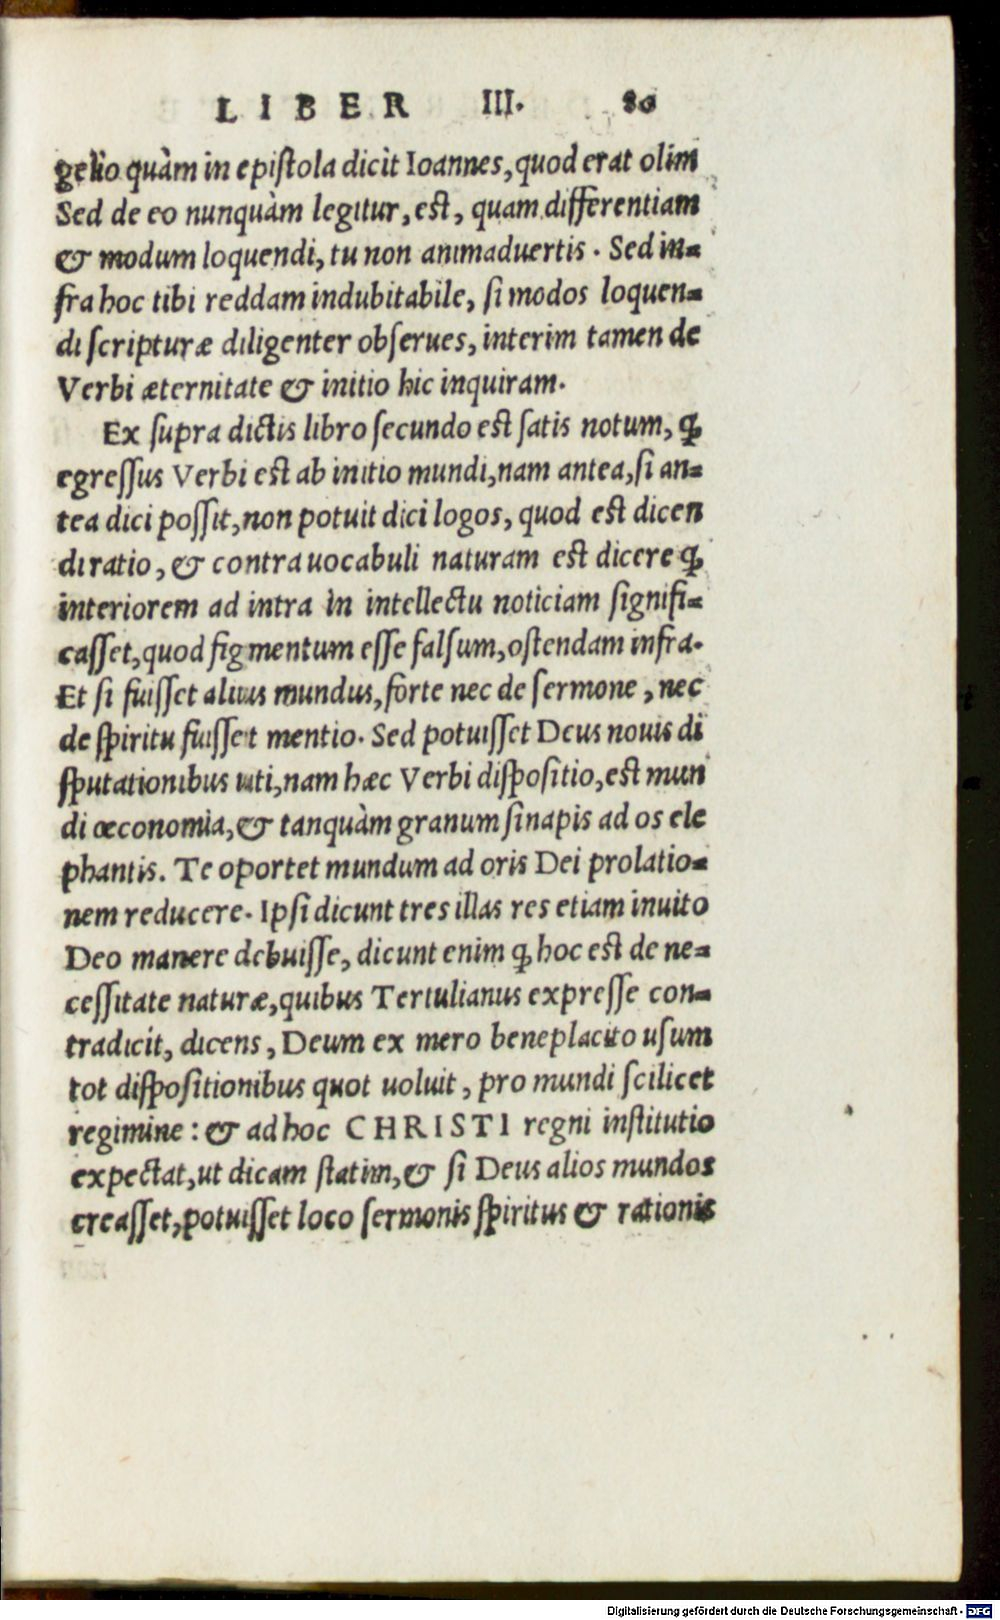 LIBER III. 80
gelio quàm in epistola dicit Ioannes, quod erat olim
Sed de eo nunquàm legitur, est, quam differentiam
& modum loquendi, tu non animaduertis. Sed in=
fra hoc tibi reddam indubitabile, si modos loquen=
di scripturæ diligenter obserues, interim tamen de
Verbi æternitate & initio hic inquiram.
Ex supra dictis libro secundo est satis notum, ꝙ
egressus Verbi est ab initio mundi, nam antea, si an=
tea dici possit, non potuit dici logos, quod est dicen
di ratio, & contra uocabuli naturam est dicere ꝙ
interiorem ad intra in intellectu noticiam signifi=
casset, quod figmentum esse falsum, ostendam infra.
Et si fuisset alius mundus, forte nec de sermone, nec
de spiritu fuisset mentio. Sed potuisset Deus nouis di
sputationibus uti, nam hæc Verbi dispositio, est mun
di œconomia, & tanquàm granum sinapis ad os ele
phantis. Te oportet mundum ad oris Dei prolatio=
nem reducere. Ipsi dicunt tres illas res etiam inuito
Deo manere debuisse, dicunt enim ꝙ hoc est de ne=
cessitate naturæ, quibus Tertulianus expresse con=
tradicit, dicens, Deum ex mero beneplacito usum
tot dispositionibus quot uoluit, pro mundi scilicet
regimine: & ad hoc CHRISTI regni institutio
expectat, ut dicam statim, & si Deus alios mundos
creasset, potuisset loco sermonis spiritus & rationis
Digitalisierung gefördert durch die Deutsche Forschungsgemeinschaft - DFG